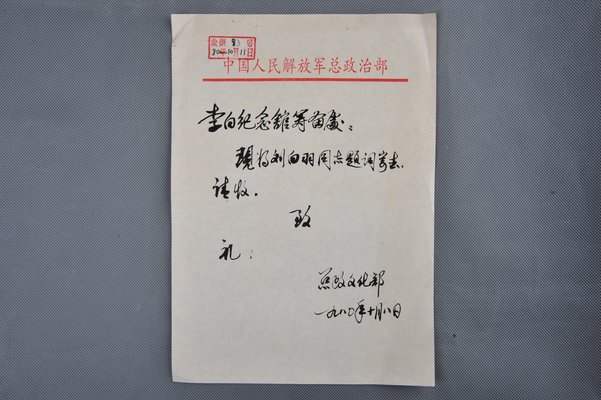 收创 93 号
80年10月11日
中国人民解放军总政治部
李白纪念馆筹备处：
现将刘白羽同志题词寄去.
请收.
致
礼：
总政文化部
一九八〇年十月八日